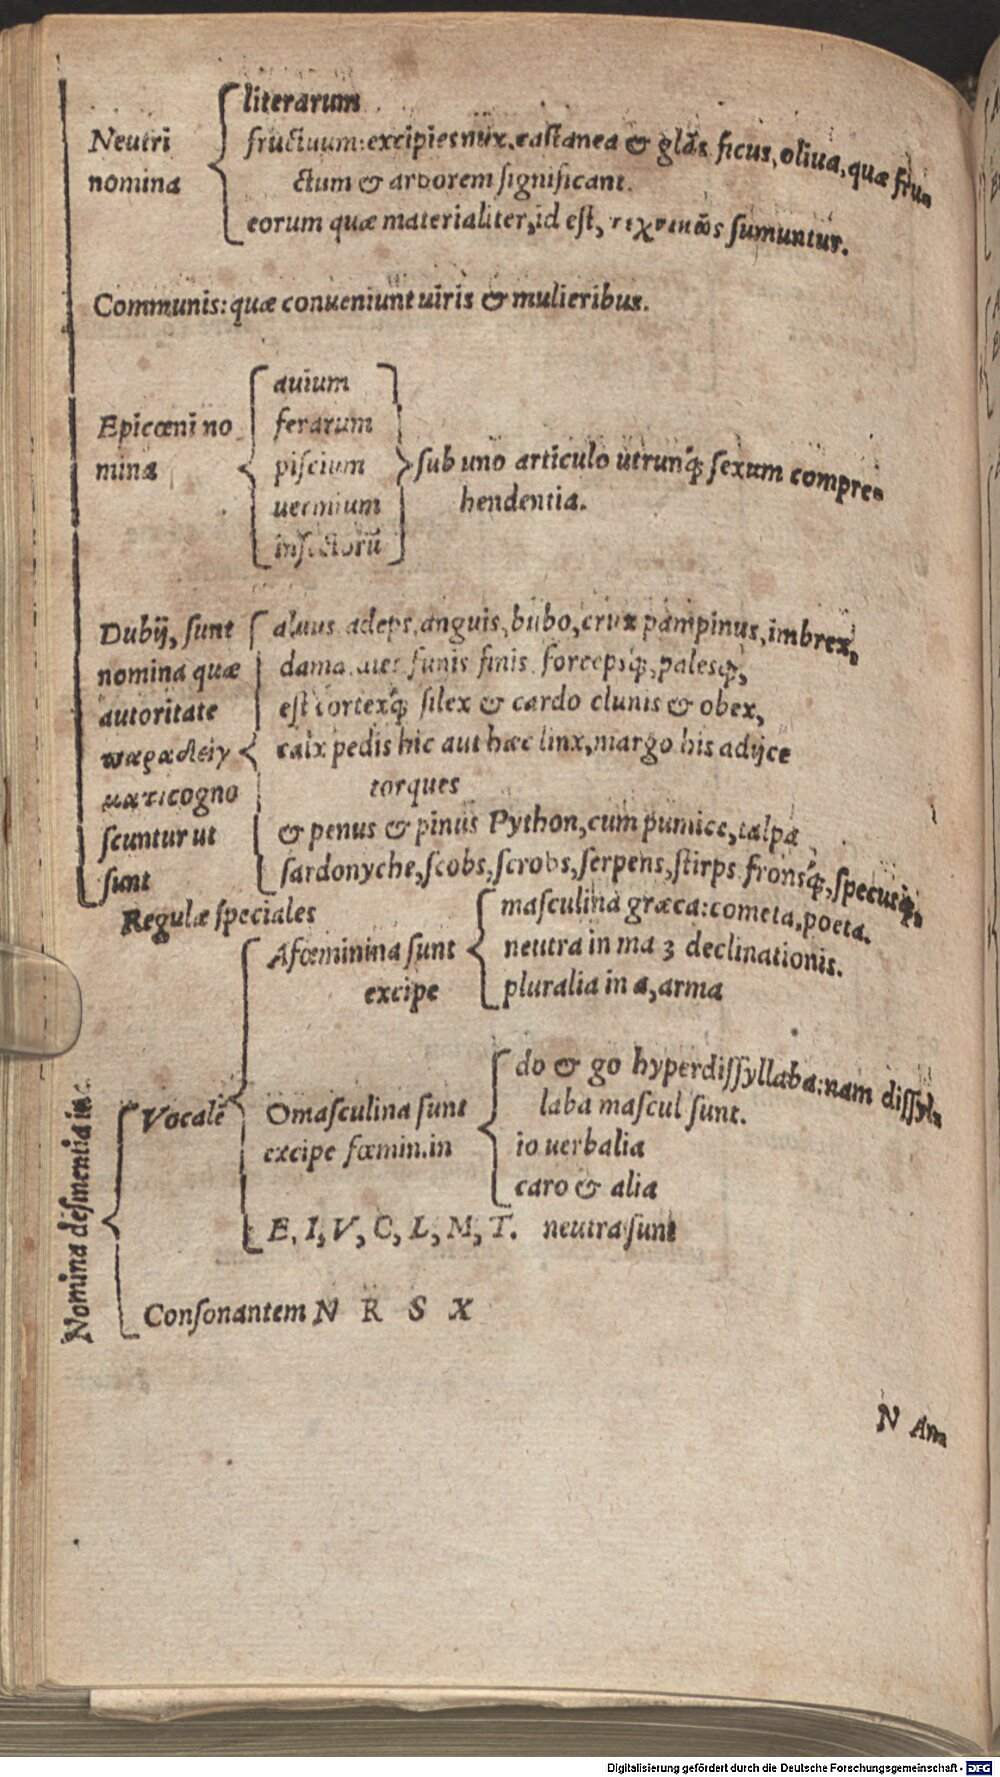 Neutri nomina
literarum
fructuum: excipies nux, castanea & glãs, ficus, oliua, quæ fru-
ctum & arborem significant.
eorum quæ materialiter, id est, τεχνικῶς sumuntur.
Communis: quæ conueniunt uiris & mulieribus.
Epicœni no
mina
auium
ferarum
piscium
uermium
insectorũ
sub uno articulo utrunq́; sexum compre-
hendentia.
Dubij, sunt
nomina quæ
autoritate
παραδειγ
ματι cogno
scuntur ut
sunt
aluus, adeps, anguis, bubo, crux pampinus, imbrex,
dama, funis finis, forcepsq́;, palesq́;,
est cortexq́; silex & cardo clunis & obex,
calx pedis hic aut hæc linx, margo his adijce
torques
& penus & pinus Python, cum pumice, talpa,
sardonyche, scobs, scrobs, serpens, stirps fronsq́;, specusq́;,
Regulæ speciales
Nomina desinentia in:
Vocalẽ
A fœminina sunt
excipe
masculina græca: cometa, poeta.
neutra in ma 3 declinationis.
pluralia in a, arma
O masculina sunt
excipe fœmin. in
do & go hyperdissyllaba: nam dissyl-
laba mascul sunt.
io uerbalia
caro & alia
E, I, V, C, L, M, T. neutra sunt
Consonantem N R S X
N An-
Digitalisierung gefördert durch die Deutsche Forschungsgemeinschaft - DFG